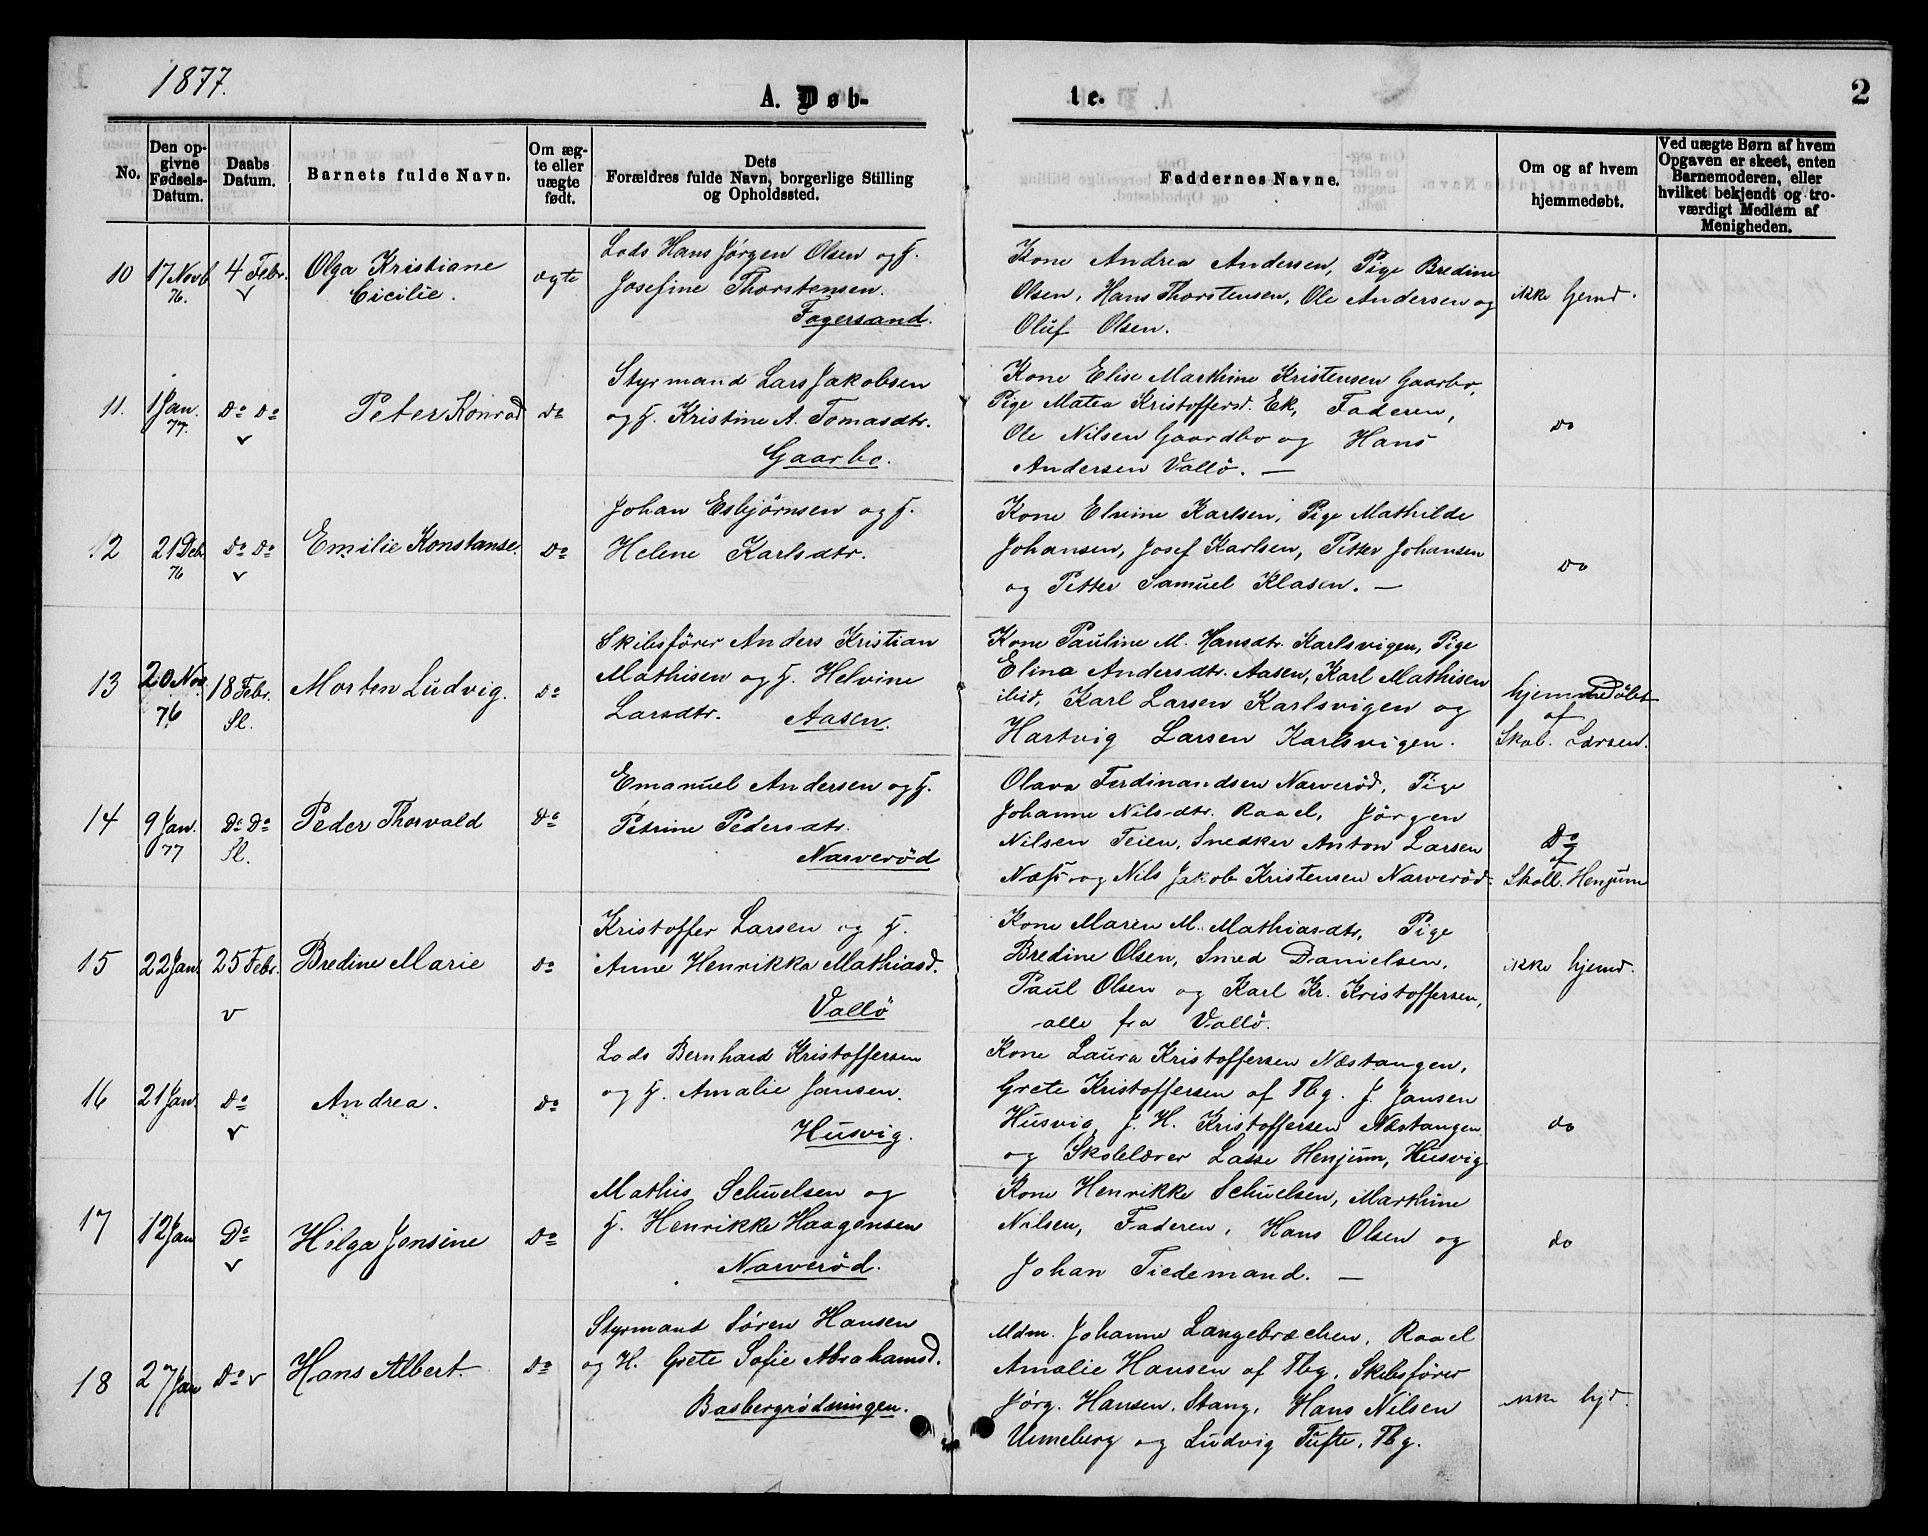 1877.
A. Døb-
te.
2
No.
Den op-
givne
Fødsels-
Datum.
Daabs
Datum.
Barnets fulde Navn.
Om æg-
te eller
uægte
født.
Dets
Forældres fulde Navn, borgerlige Stilling
og Opholdssted.
Faddernes Navne.
Om og af hvem
hjemmedøbt.
Ved uægte Børn af hvem
Opgaven er skeet, enten
Barnemoderen, eller
hvilket bekjendt og tro-
værdigt Medlem af
Menigheden.
10
17 Novb
76.
4 Febr.
v
Olga Kristiane
Cicilie.
ægte
Lods Hans Jörgen Olsen og H.
Josefine Thorstensen.
Fagersand.
Kone Andrea Andersen, Pige Bredine
Olsen, Hans Thorstensen, Ole Andersen og
Oluf Olsen.
ikke hjemd.
11.
1 Jan.
77.
Do Do
v
Peter Konrad
Do
Styrmand Lars Jakobsen
og H. Kristine A. Tomasdtr.
Gaarbo.
Kone Elise Marthine Kristensen Gaarbo,
Pige Matea Kristoffersd. Ek, Faderen,
Ole Nilsen Gaardbo og Hans
Andersen Vallö. —
do
12
21 Deb.
76
Do Do
v
Emilie Konstanse.
Do
Johan Esbjörnsen og H.
Helene Karlsdtr.
Kone Elvine Karlsen, Pige Mathilde
Johansen, Josef Karlsen, Petter Johansen
og Petter Samuel Klasen. —
do
13
20 Nov.
76
18 Febr.
Sl.
Morten Ludvig.
Do
Skibsförer Anders Kristian
Mathisen og H. Helvine
Larsdtr. Aasen.
Kone Pauline M. Hansdtr. Karlsvigen, Pige
Elina Andersdtr. Aasen, Karl Mathisen
ibid, Karl Larsen Karlsvigen og
Hartvig Larsen Karlsvigen.
hjemmedöbt
af
Skol. Larsen.
14
9 Jan.
77
Do Do
Sl.
Peder Thorvald
Do
Emanuel Andersen og H.
Petrine Pedersdtr.
Narveröd
Olava Ferdinandsen Narveröd, Pige
Johanne Nilsdtr. Raael, Jörgen
Nilsen Teien, Snedker Anton Larsen
Næss og Nils Jakob Kristensen Narveröd.
Do
af
Skoll. Henjum
15
22 Jan.
25 Febr.
v
Bredine Marie
Do
Kristoffer Larsen og H.
Anne Henrikka Mathiasd.
Vallö
Kone Maren M. Mathiasdtr, Pige
Bredine Olsen, Smed Danielsen,
Paul Olsen og Karl Kr. Kristoffersen,
alle fra Vallö.
ikke hjemd.
16
21 Jan.
Do
v
Andrea.
Do
Lods Bernhard Kristoffersen
og H. Amalie Jansen.
Husvig.
Kone Laura Kristoffersen Næstangen,
Grete Kristoffersen af Tbg. J. Jansen
Husvig, J. H. Kristoffersen Næstangen
og Skolelærer Lasse Henjum, Husvig.
do
17
12 Jan
Do
v
Helga Jensine
Do
Mathis Schuelsen og
H. Henrikke Haagensen
Narveröd.
Kone Henrikke Schuelsen, Marthine
Nilsen, Faderen, Hans Olsen og
Johan Tiedemand. —
do
18
27 Jan
Do v
Hans Albert.
Do
Styrmand Sören Hansen
og H. Grete Sofie Abrahamsd.
Basbergrödningen.
Mdm. Johanne Langebræchen, Raael
Amalie Hansen af Tbg. Skibsförer
Jörg. Hansen, Stang, Hans Nilsen
Unneberg og Ludvig Tufte, Tbg.
ikke hjd.